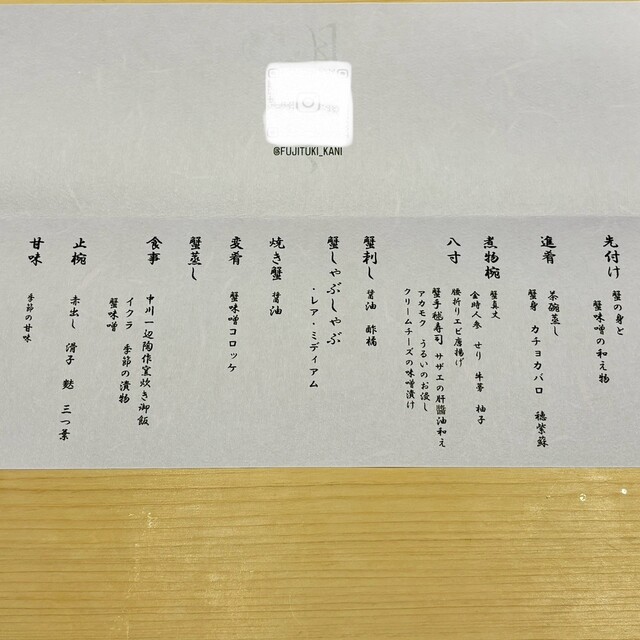 @FUJITUKI_KANI
先付け
蟹の身と
蟹味噌の和え物
進肴
茶碗蒸し
蟹身 カチョカバロ 穂紫蘇
煮物椀
蟹真丈
金時人参 せり 牛蒡 柚子
八寸
腰折りエビ唐揚げ
蟹手毬寿司 サザエの肝醤油和え
アカモク うるいのお浸し
クリームチーズの味噌漬け
蟹刺し
醤油 酢橘
蟹しゃぶしゃぶ
・レア・ミディアム
焼き蟹
醤油
変肴
蟹味噌コロッケ
蟹蒸し
食事
中川一辺陶作窯炊き御飯
イクラ 季節の漬物
蟹味噌
止椀
赤出し 滑子 麩 三つ葉
甘味
季節の甘味